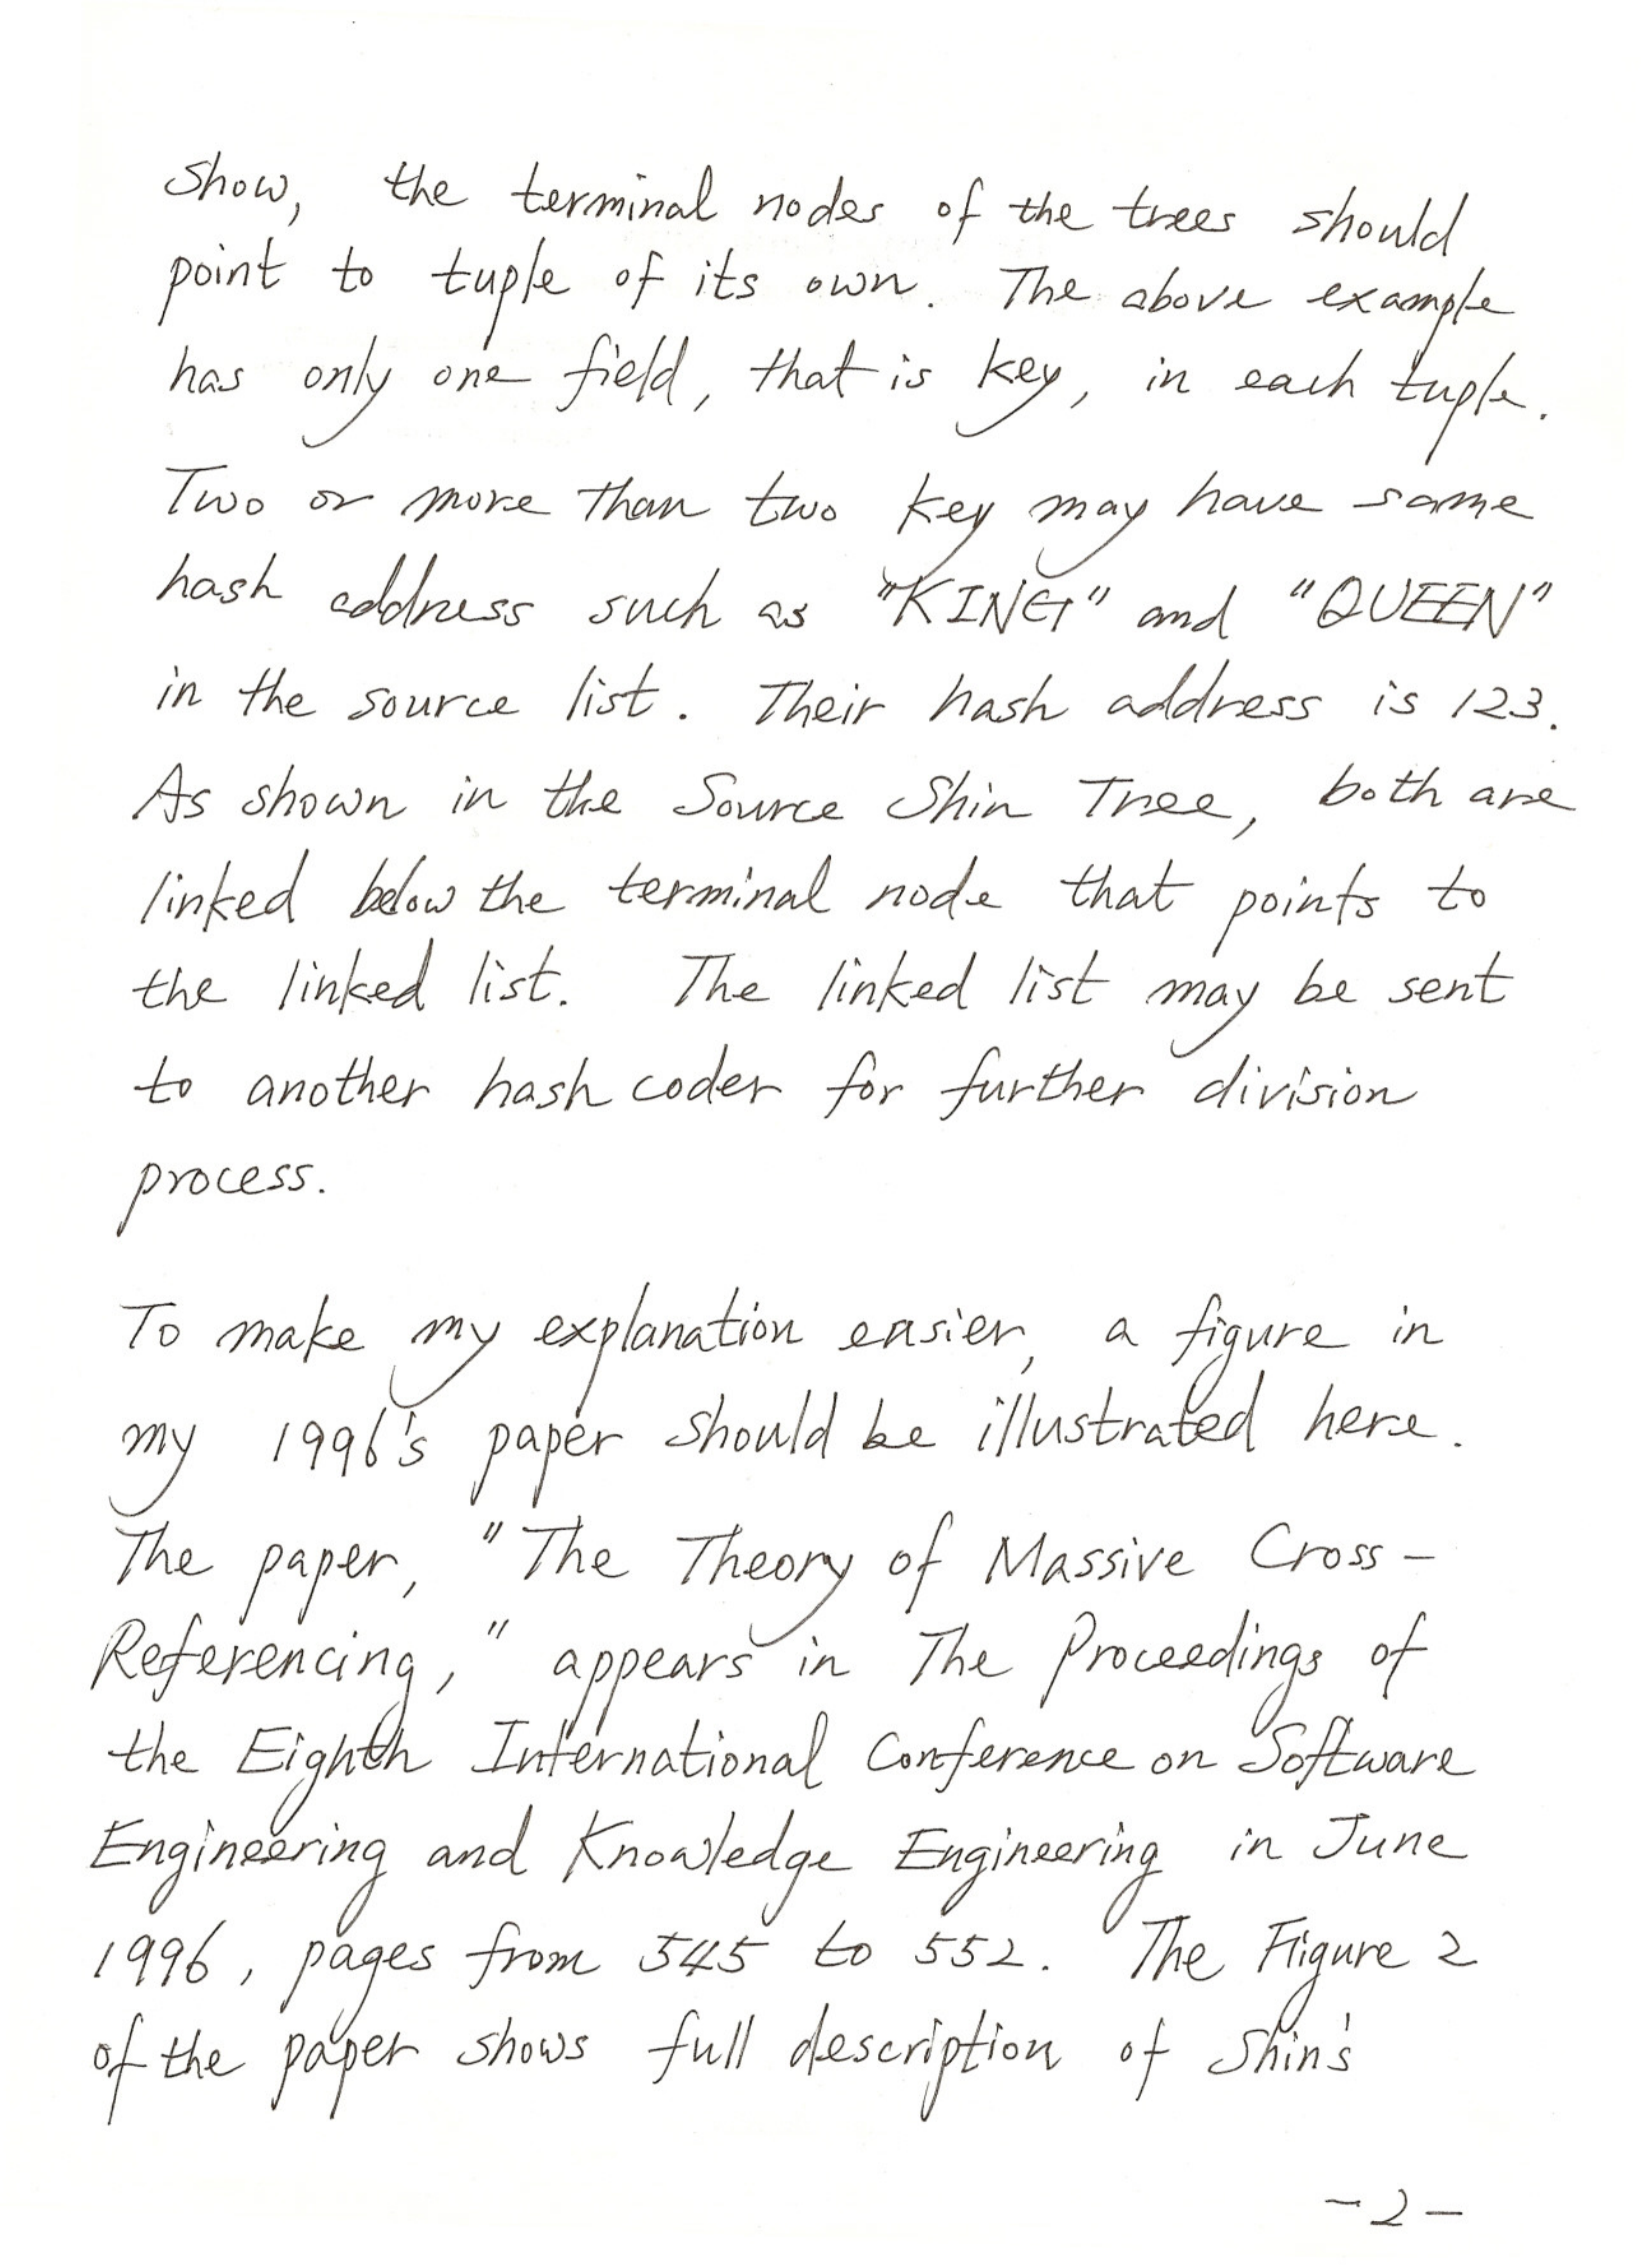 show, the terminal nodes of the trees should
point to tuple of its own. The above example
has only one field, that is key, in each tuple.
Two or more than two key may have same
hash address such as "KING" and "QUEEN"
in the source list. Their hash address is 123.
As shown in the Source Shin Tree, both are
linked below the terminal node that points to
the linked list. The linked list may be sent
to another hash coder for further division
process.
To make my explanation easier, a figure in
my 1996's paper should be illustrated here.
The paper, "The Theory of Massive Cross-
Referencing," appears in The Proceedings of
the Eighth International Conference on Software
Engineering and Knowledge Engineering in June
1996, pages from 545 to 552. The Figure 2
of the paper shows full description of Shin's
-2-